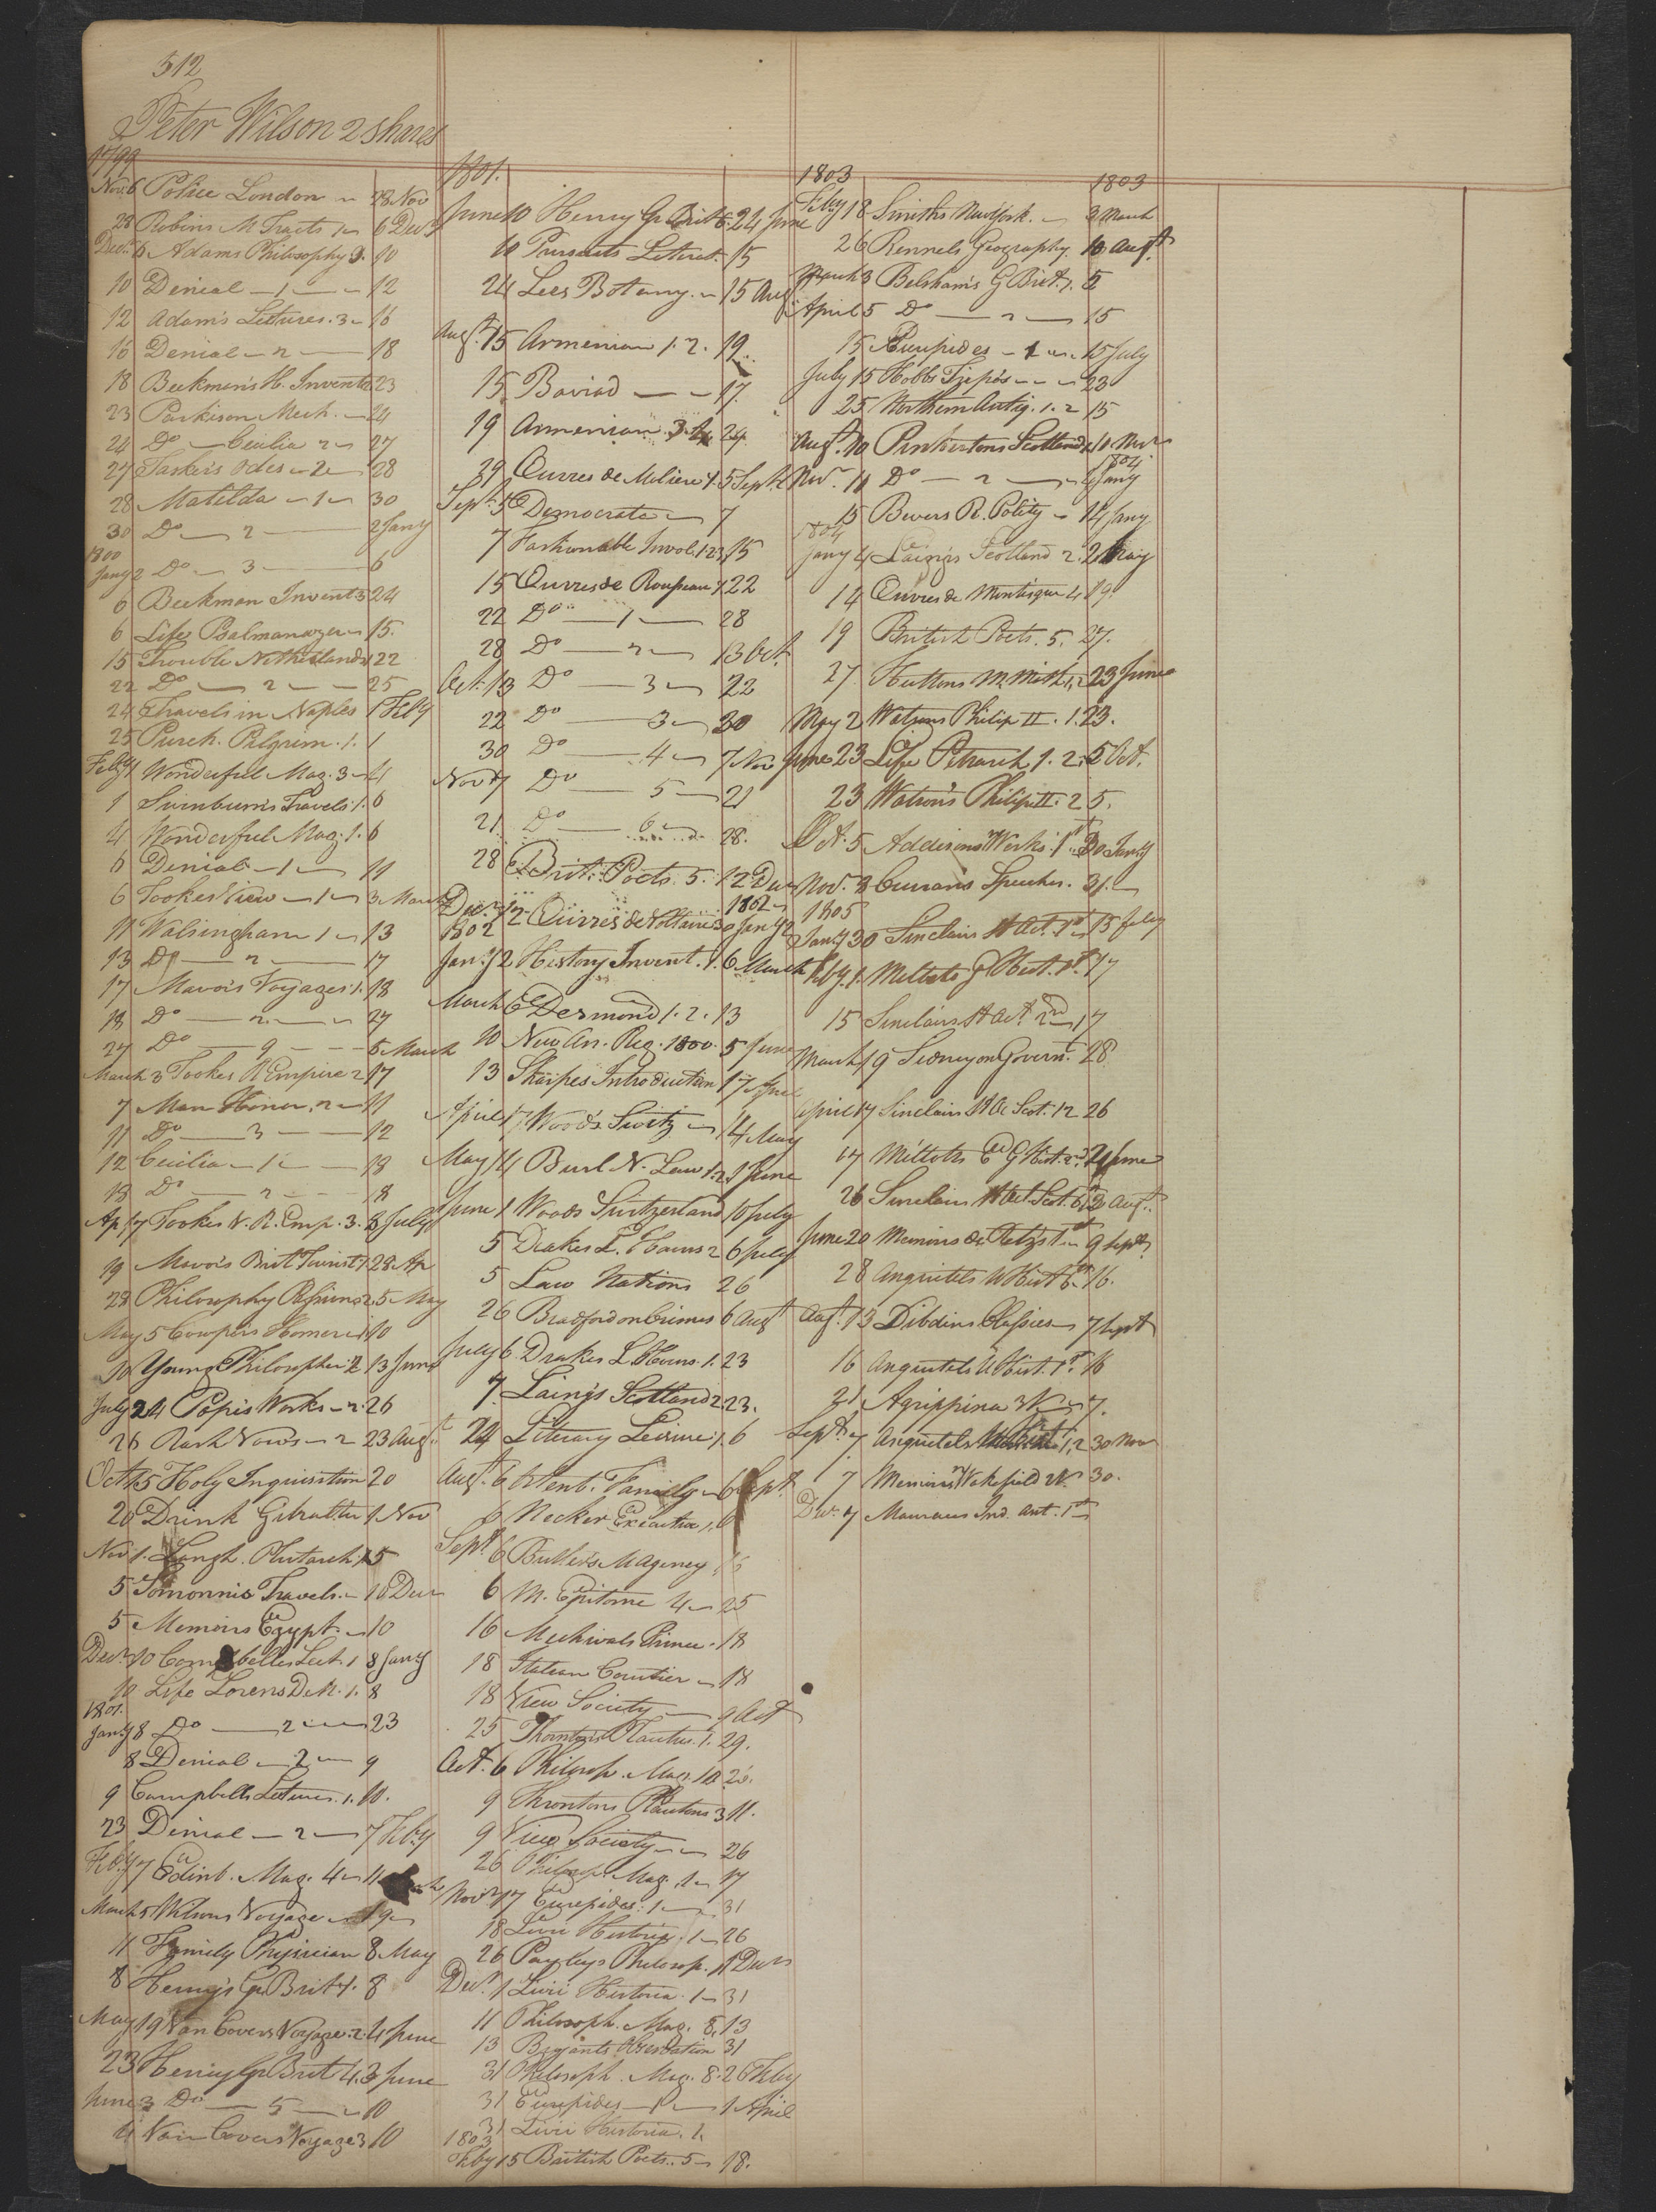 512
Peter Wilson 2 shares
1799
Nov. 6 Police London 28 Nov
28 Robins M Tracts 1 6 Decr
Decr. 6 Adams Philosophy 10
10 Denial 1 12
12 Adam's Lectures. 3 16
16 Denial 2 18
18 Beekman's H. Invents 23
23 Parkison Mech. 24
24 Do Cecilia 2 27
27 Taskers Odes 2 28
28 Matilda 1 30
30 Do 2 2 Jany
1800
Jany 2 Do 3 6
6 Beekman Invent 3 24
6 Life Psalmanazer 15.
15 Trouble Netherlands 1 22
22 Do 2 25
24 Travels in Naples 1 Feby
25 Purch. Pilgrim. 1. 1
Feby 1 Wonderful Mag. 3 4
1 Swinburn's Travels 1. 6
4 Wonderful Mag. 1. 6
6 Denial 1 11
6 Tookes View 1 3 March
11 Walsingham 1 13
13 Do 2 17
17 Mavors Voyages 1. 18
18 Do 2 27
27 Do 9 5 March
March 3 Tookes R Empire 2 17
7 Man Honor. 2 11
11 Do 3 12
12 Cecilia 1 18
18 Do 2 18
Ap 17 Tookes V. R. Emp. 3. 8 July
19 Mavors Brit Tourist 1 28 Ap
28 Philosophy 2. 5 May
May 5 Cowpers Homer 1 10
10 Young Philosopher 2 13 June
July 24 Popes Works 2. 26
26 Rash Vows 2 23 Augt
Oct 15 Holy Inquisition 20
20 Drink Gibralter 1 Nov
Nov 1. Langh. Plutarch 1 5
5 Travels. 10 Decr
5 Memoirs Egypt 10
Decr. 10 Lect. 1 8 Jany
10 Life Lorens De M. 1. 8
1801.
Jany 8 Do 2 23
8 Denial 2 9
9 Campbells Lectures. 1. 10.
23 Denial 2 7 Feby
Feby 7 Edinb. Mag. 4 11
March 5 Wilsons Voyage 19
11 Family Physician 8 May
8 Henrys G Brit 1. 8
May 19 Van Covers Voyage. 2. 4 June
23 Henry G Brit 4. 3 June
June 3 Do 5 10
4 Van Covers Voyage 3 10
1801.
June 10 Henry G Brit 6. 24 June
10 Pursuits Literat. 15
24 Lees Botany. 15 Aug
Augt. 15 Armenian 1. 2. 19.
15 Baviad 17.
19 Armenian. 3. 4. 24.
29 Œuvres de Moliere 1. 5 Sept.
Sept. 5 Democrate 7
7 Fashionable Invol. 1 2 3 15
15 Œuvres de Rousseau 1 22
22 Do 1 28
28 Do 2 13 Oct.
Oct. 13 Do 3 22
22 Do 3 30
30 Do 4 7 Nov
Nov 7 Do 5 21
21. Do 6 28.
28 Brit. Poets. 5. 12 Decr
Decr. 12 Œuvres de Voltaire 30 Jany 2
1802
1802
Jany 2 History Invent. 1. 6 March
March 6 Desmond 1. 2. 13
10 New An. Reg. 1800. 5 June
13 Sharpes Introduction 17 April
April 17 Woods Switz 14 May
May 14 Burl N. Law 1. 2 1 June
June 1 Woods Switzerland 10 July
5 Drakes L. Hours 2 6 July
5 Law Nations 26
26 Bradford on Crimes 6 Augt
July 6 Drakes L Hours. 1. 23
7. Laing's Scotland 2 23.
24 Literary Leisure 1. 6
Augt. 6 Family 6 Sept.
6 Necker Executive 1. 6
Sept. 6 Butlers M Agency 16
6 M. Epitome 4 25
16 Machivals Prince. 18
18 Italian Courtier 18
18 View Society 9 Oct
25 Thorntons Plautus. 1. 29.
Oct. 6 Philosop. Mag. 10 26.
9 Throntons Plautus 3 11.
9 View Society 26
26 Philosop. Mag. 1 17
Novr 17 Euripides. 1 31
18 Livii Historia. 1 26
26 Payleys Philosop. 1 Decr
Decr. 1 Livii Historia. 1 31
11 Philosoph. Mag. 8. 13
13 Bryants 31
31 Philosoph. Mag. 8. 26 Feby
31 Euripides 1 1 April
31 Livii Historia. 1.
1803
Feby 15 British Poets. 5 18.
1803
1803
Feby 18 Smiths New York. 3 March
26 Rennels Geography. 10 Augt.
March 3 Belsham's G Brit. 1. 5
April 5 Do 2 15
15 Euripides 1 15 July
July 15 Hobbs Tripos 23
25 Northern Antiq. 1. 2 15
Augt. 10 Pinkertons Scotland 1 11 Nov
1804
Nov. 11 Do 2 4 Jany
15 Bevers R. Polity 14 Jany
1804
Jany 4 Laing's Scotland 2. 2 May
14 Œuvres de Montisque 4 19.
19 British Poets. 5. 27.
27 Huttons M. Math 1, 2 23 June
May 2 Watsons Philip II. 1. 23.
June 23 Life Petrarch 1. 2. 5 Oct.
23 Watson's Philip II. 2 5.
Oct. 5 Addisons Works. 1st. 30 Jany
Nov. 8 Currans Speeches. 31.
1805
Jany 30 Sinclairs St Act. 1st 15 July
Feby. 1. Millots G Hist. 1st. 17
15 Sinclairs St Act. 2nd 17
March 19 Sidney on Govern.t 28
April 17 Sinclairs St Ac Scot. 12 26
17 Millots El G Hist. 2nd. 21 June
26 Sinclairs St Act. Scot. 13 Augt.
June 20 Memoirs de Retz 1st 9 Sept.
28 Anquitels U Hist 6. 16.
Augt. 13 Dibdins Classics 7 Sept
16 Anquitels U Hist. 1st. 16
21 Agrippina 3 V 7.
Sept. 7 Anquitels 1, 2 30 Nov
7 Memoirs Wakefield 30.
Decr. 7 Maurices Ind. Ant. 1st